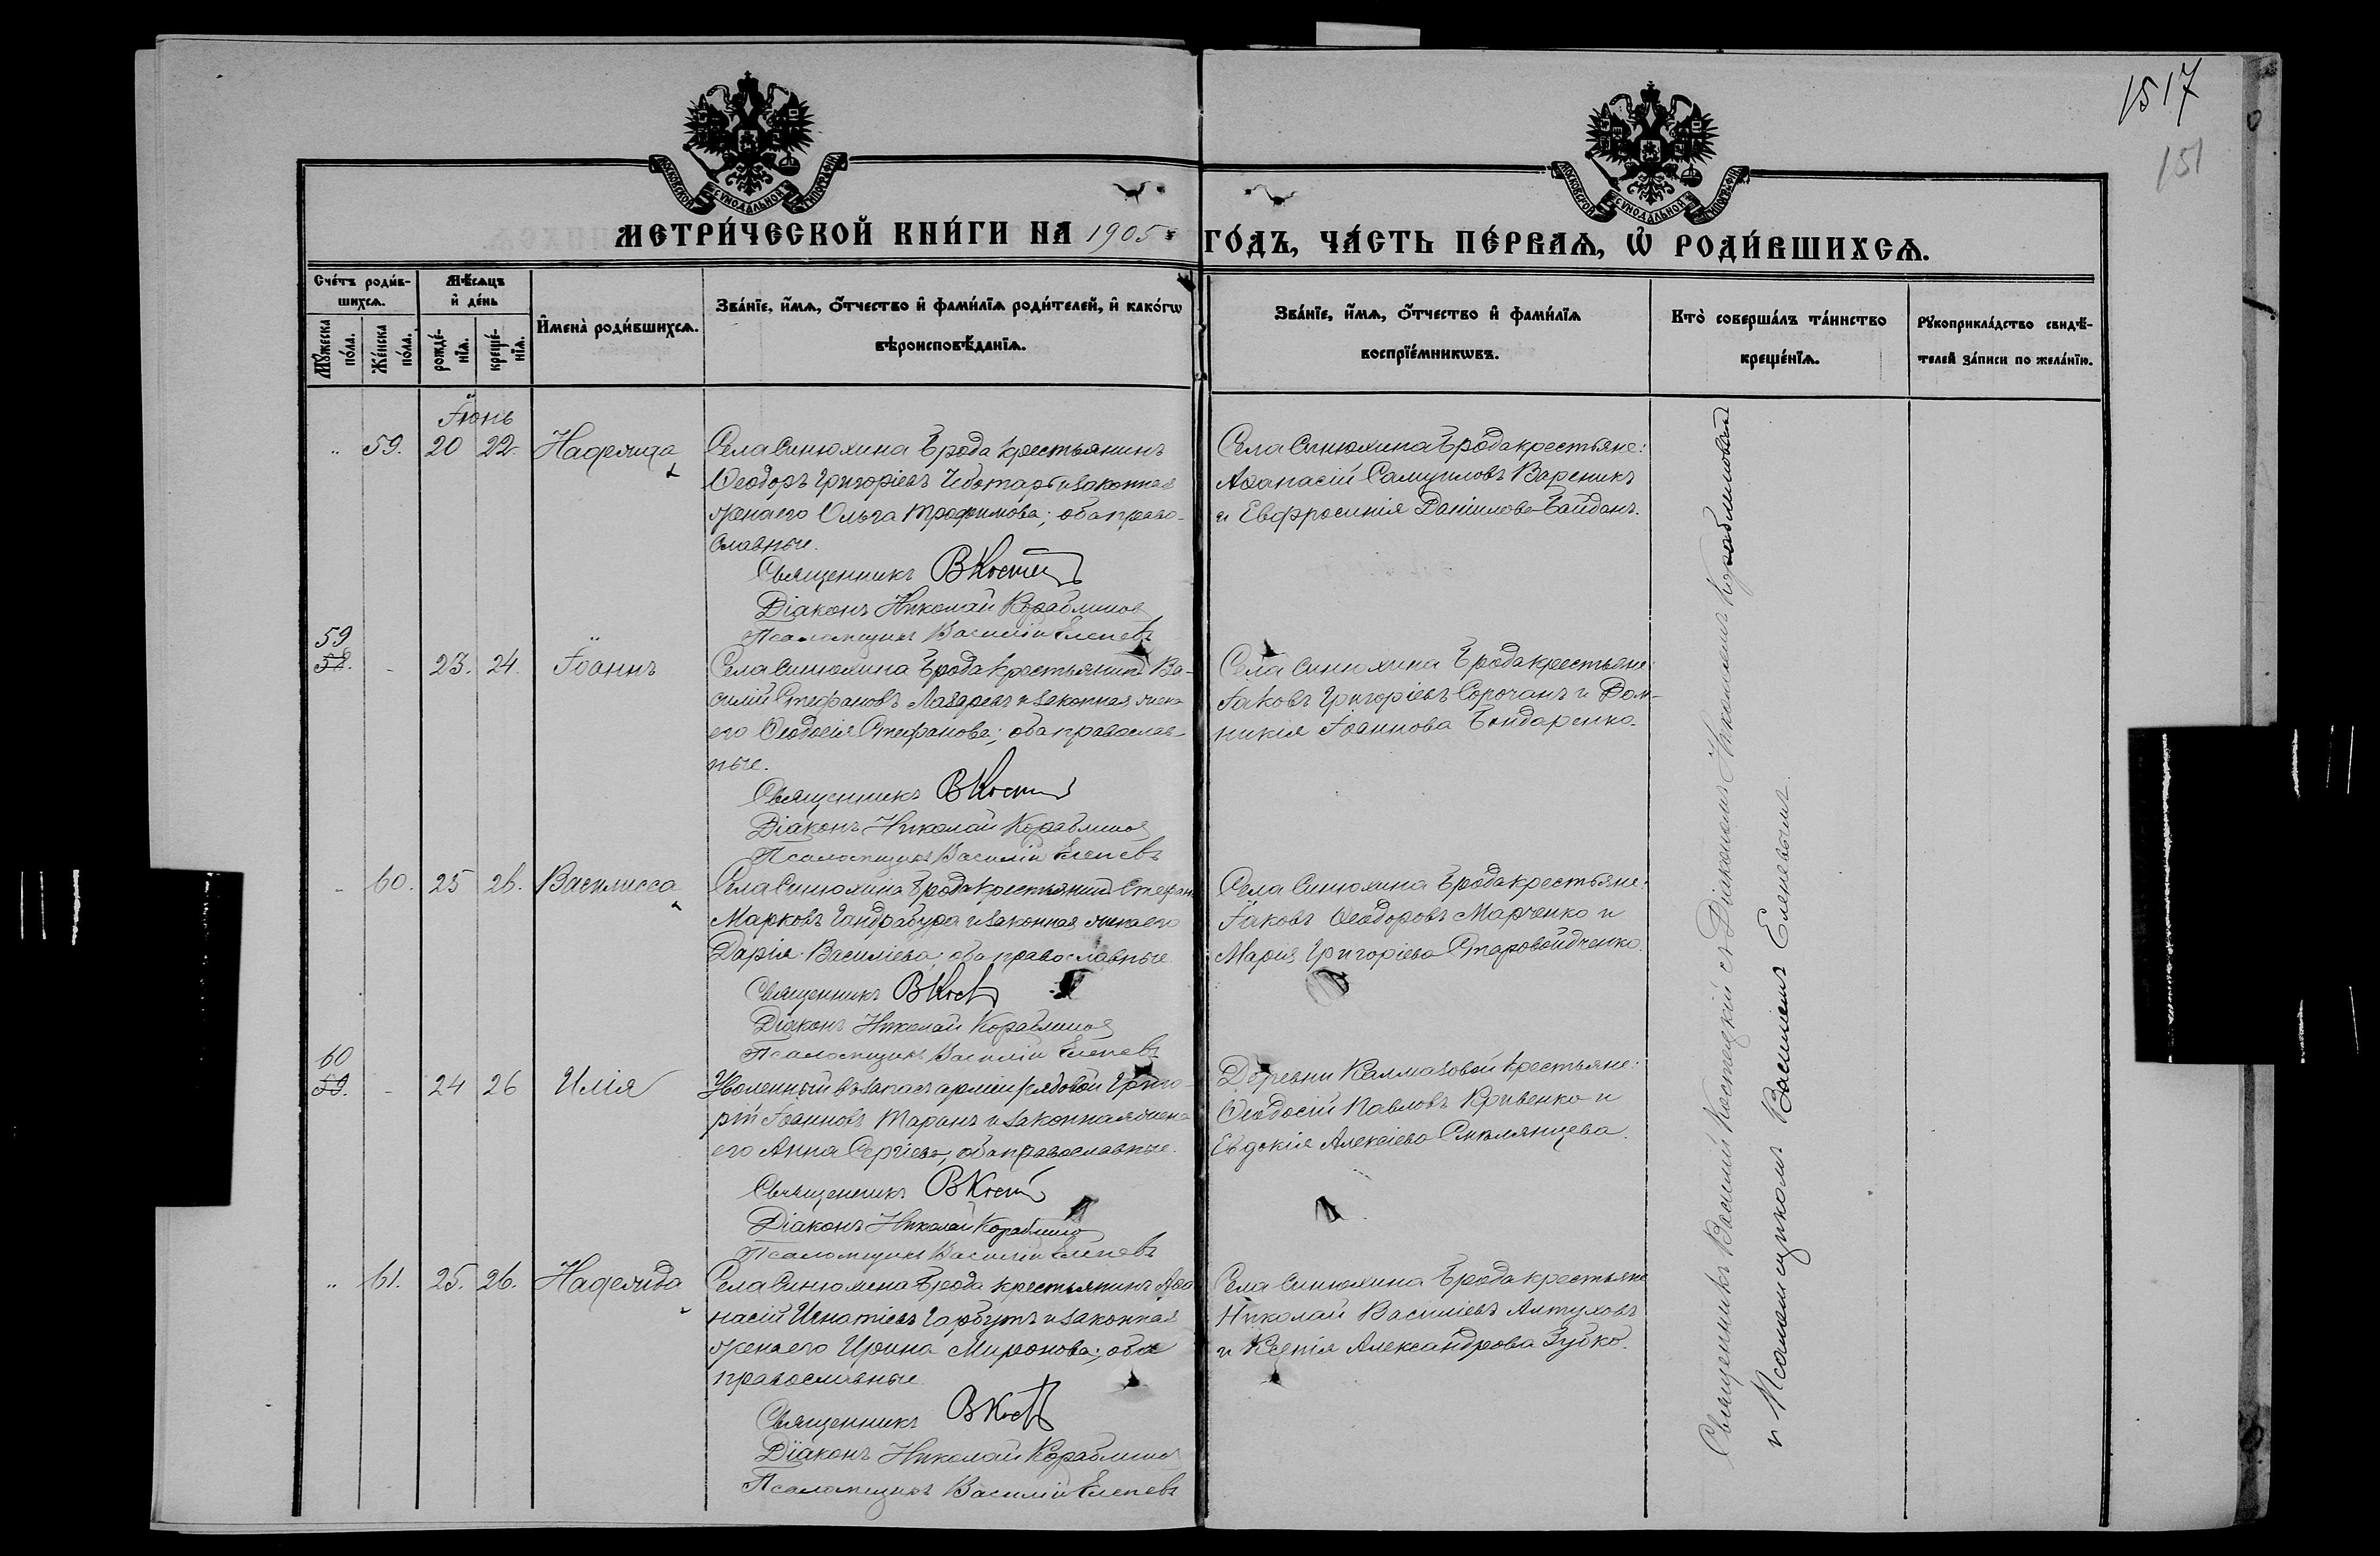 1517
151
МОСКОВСКОЙ СѴНОДАЛЬНОЙ ТИПОГРАФІИ
МОСКОВСКОЙ СѴНОДАЛЬНОЙ ТИПОГРАФІИ
МЕТРИ́ЧЕСКОЙ КНИ́ГИ НА 1905 ГО́ДЪ, ЧА́СТЬ ПЕ́РВАѦ, Ѡ҆ РОДИ́ВШИХСѦ.
Сче́тъ роди́в-
шихсѧ.
Мꙋ́жеска
по́ла.
Же́нска
по́ла.
Мѣ́сѧцъ
и҆ де́нь
рожде́-
нїѧ.
креще́-
нїѧ.
И҆мена̀ роди́вшихсѧ.
Зва́нїе, и҆́мѧ, ѻ҆́тчество и҆ фами́лїѧ роди́телей, и҆ како́гѡ
вѣроисповѣ́данїѧ.
Зва́нїе, и҆́мѧ, ѻ҆́тчество и҆ фами́лїѧ
воспрїе́мникѡвъ.
Кто̀ соверша́лъ та́инство
креще́нїѧ.
Рꙋкоприкла́дство свидѣ́-
телей за́писи по жела́нїю.
Іюнь
" 59. 20 22 Надежда
Села Синюхина Брода крестьянинъ
Ѳеодоръ Григоріевъ Чеботарь и законная
жена его Ольга Трофимова; оба право-
славные.
Священникъ В Кост
Діаконъ Николай Кораблинов
Псаломщикъ Василій Еленевъ
Села Синюхина Брода крестьяне:
Аѳанасій Самуиловъ Вареникъ
и Евфросинія Даніилова Байданъ.
59
58. - 23. 24. Іоаннъ
Села Синюхина Брода крестьянинъ Ва-
силій Стефановъ Лазаревъ и законная жена
его Ѳеодосія Стефанова; оба православ-
ные.
Священникъ В Кост
Діаконъ Николай Кораблинов
Псаломщикъ Василій Еленевъ
Села Синюхина Брода крестьяне:
Іаковъ Григоріевъ Сорочанъ и Дом-
никія Іоаннова Бондаренко.
- 60. 25 26. Василисса
Села Синюхина Брода крестьянинъ Стефанъ
Марковъ Гандрабура и законная жена его
Дарія Василіева; оба православные.
Священникъ В Кост
Діаконъ Николай Кораблинов
Псаломщикъ Василій Еленевъ
Села Синюхина Брода крестьяне:
Іаковъ Ѳеодоровъ Марченко и
Марія Григоріева Старовойдченко.
60
59. - 24 26 Илія
Уволенный въ запасъ арміи рядовой Григо-
рій Іоанновъ Таранъ и законная жена
его Анна Сергіева, оба православные.
Священникъ В Кост
Діаконъ Николай Кораблинов
Псаломщикъ Василій Еленевъ
Деревни Калмазовой крестьяне:
Ѳеодосій Павловъ Кривенко и
Евдокія Алексіева Смѣлянцева.
" 61. 25. 26. Надежда
Села Синюхина Брода крестьянинъ Аѳа-
насій Игнатіевъ Гарбузъ и законная
жена его Ирина Миронова; оба
православные.
Священникъ В Кост
Діаконъ Николай Кораблинов
Псаломщикъ Василій Еленевъ
Села Синюхина Брода крестьяне
Николай Василіевъ Алтуховъ
и Ксенія Александрова Зубко.
Священникъ Василій Костецкій съ Діакономъ Николаемъ Кораблиновымъ
и Псаломщикомъ Василіемъ Еленевымъ.